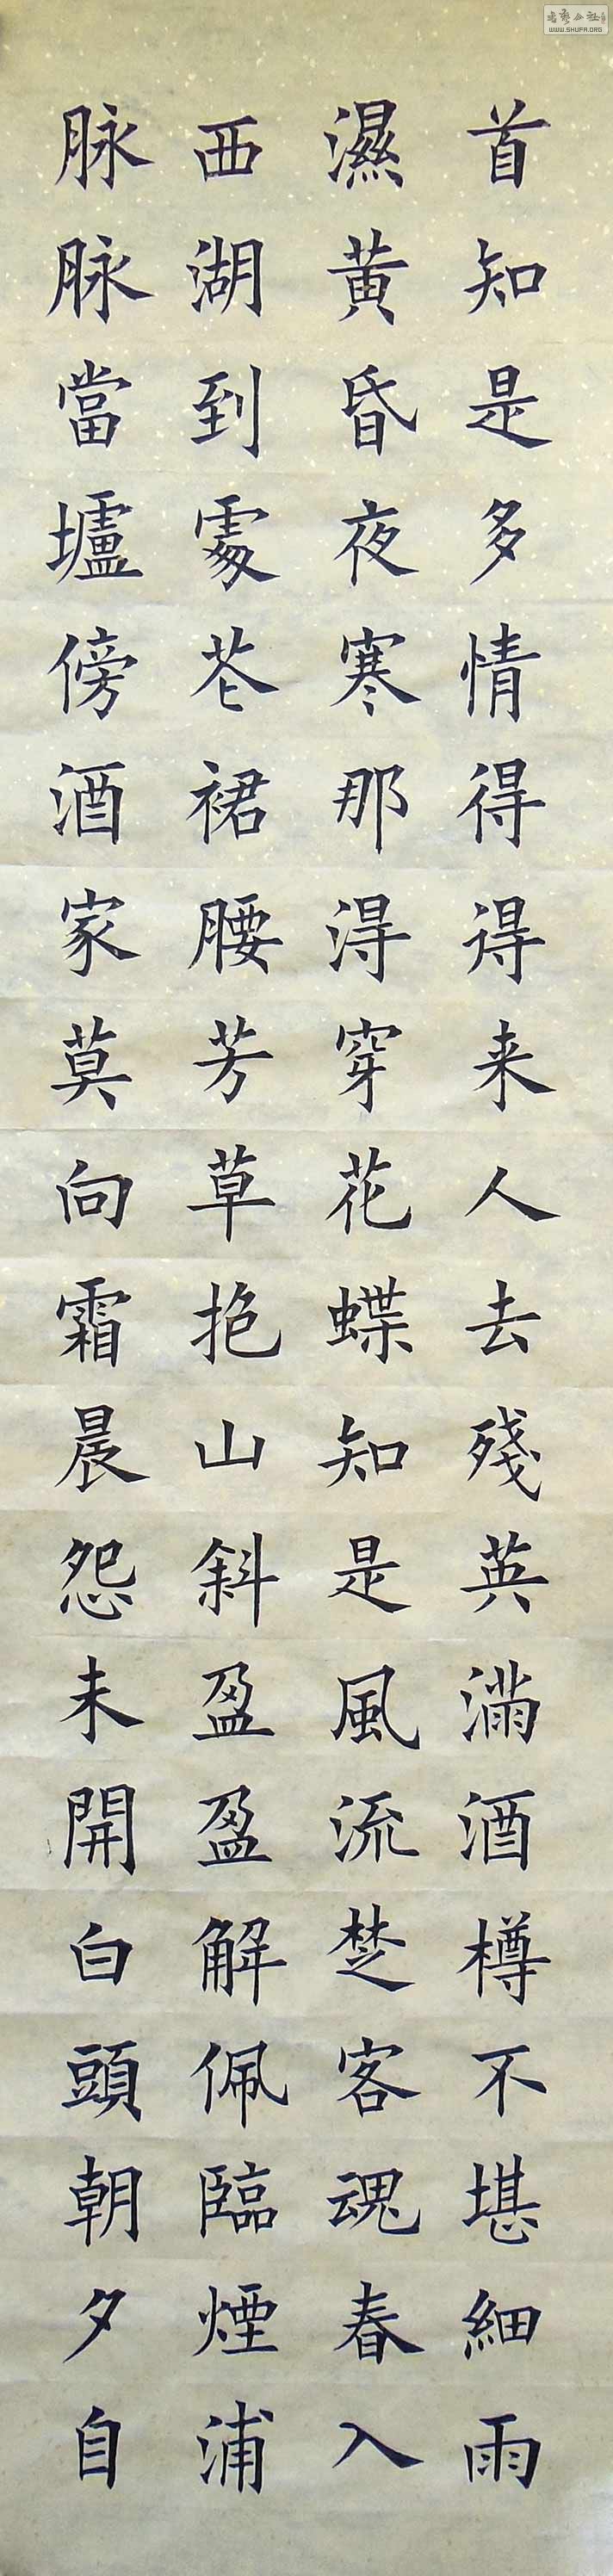 首知是多情得得来人去殘英滿酒樽不堪細雨
濕黄昏夜寒那淂穿花蝶知是風流楚客魂春入
西湖到處花裙腰芳草抱山斜盈盈解佩臨煙浦
脉脉當壚傍酒家莫向霜晨怨未開白頭朝夕自
WWW.SHUFA.ORG